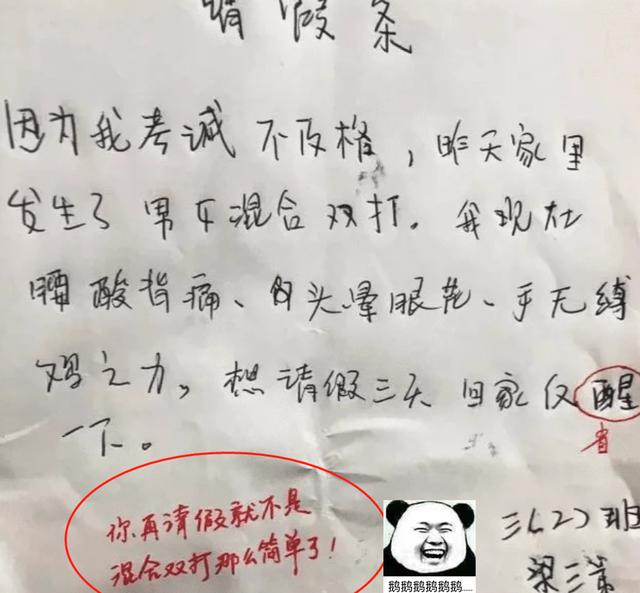 请假条
因为我考试不及格，昨天家里
发生了男女混合双打。我现在
腰酸背痛、头晕眼花、手无缚
鸡之力。想请假三天 回家仅醒
省
一下。
你再请假就不是
混合双打那么简单了！
三(2)班
梁三
鹅鹅鹅鹅鹅鹅....